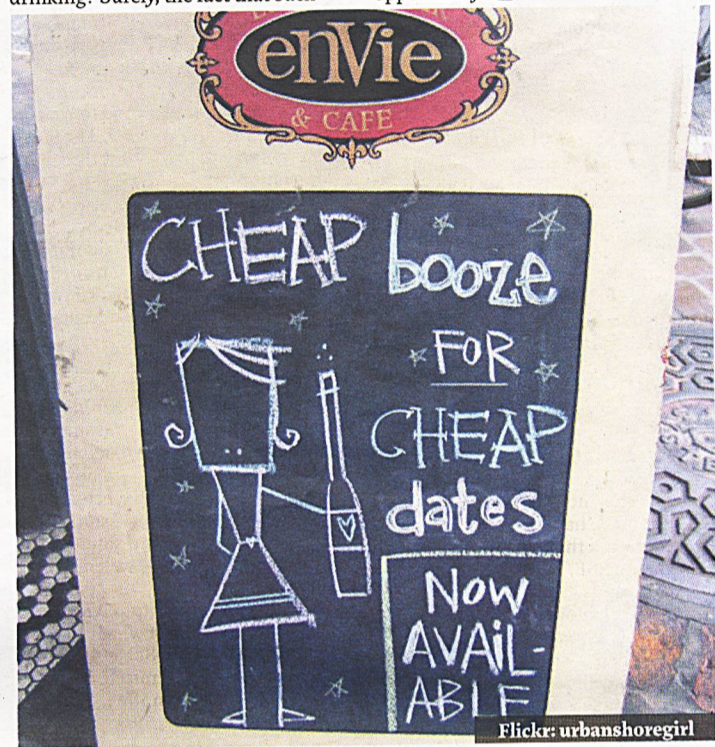 enVie
& CAFE
CHEAP booze
FOR
CHEAP
dates
Now
AVAiL-
ABLE
Flickr: urbanshoregirl